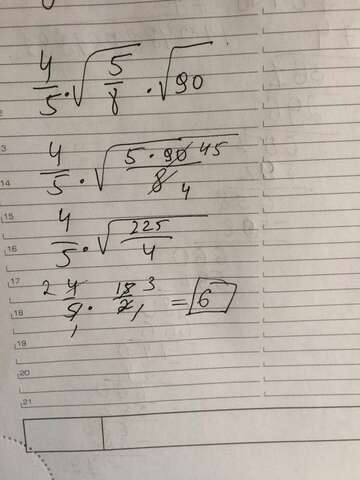 4/5 · √(5/8) · √90
13
4/5 · √(5 · 90 45 / 8 4)
14
15
4/5 · √(225/4)
16
17
2 4/5 1 · 15 3 / 2 1 = 6
18
19
20
21